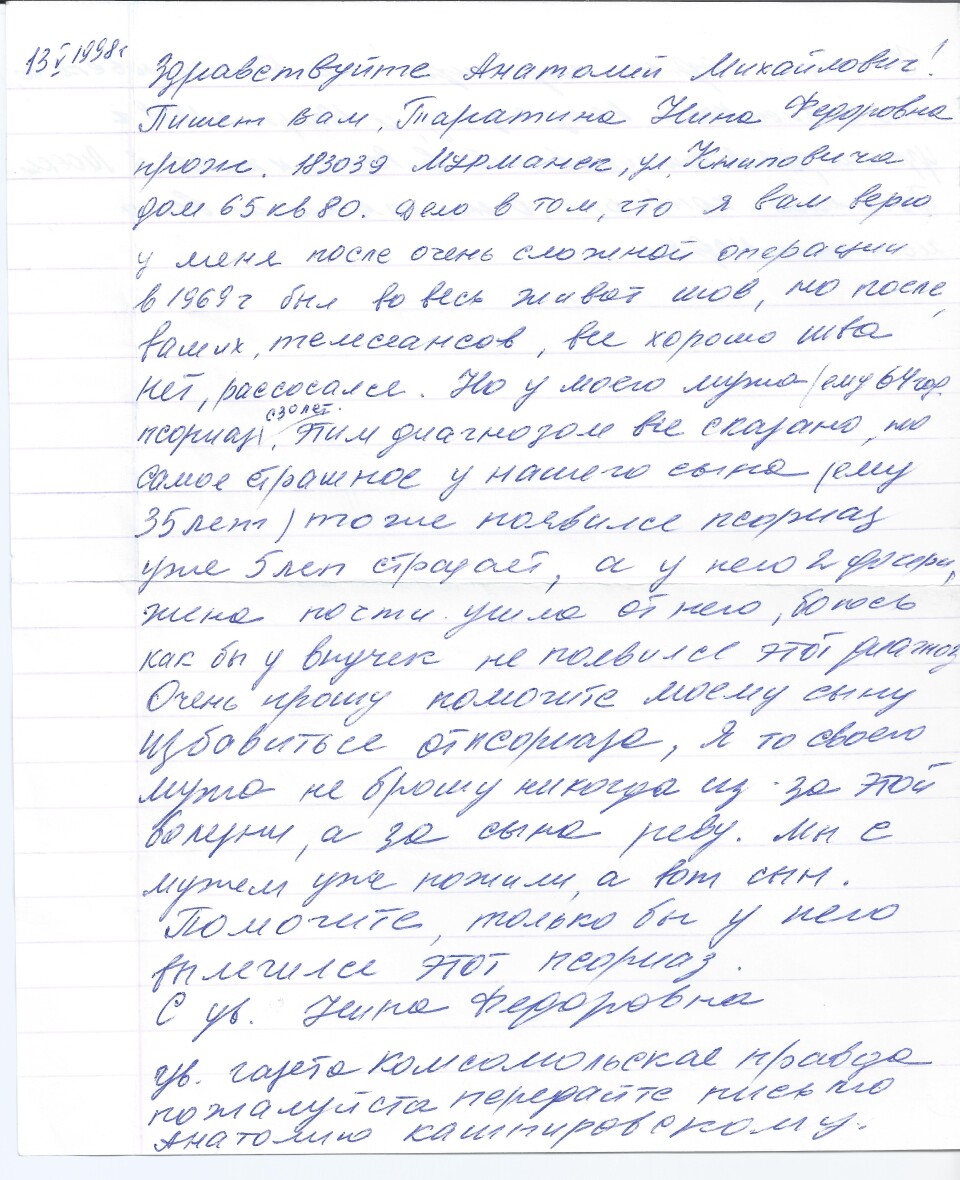 13 V 1998г
Здравствуйте Анатолий Михайлович!
Пишет вам, Таратина Нина Федоровна
прож. 183039 Мурманск, ул. Книповича
дом 65 кв 80. Дело в том, что я вам верю,
у меня после очень сложной операции
в 1969 г был во весь живот шов, но после,
ваших, телесеансов, все хорошо шва
нет, рассосался. Но у моего мужа (ему 64 год.
с 30 лет.
псориаз. Этим диагнозом все сказано, но
самое страшное у нашего сына (ему
35 лет) тоже появился псориаз
уже 5 лет страдает, а у него 2 дочери,
жена почти ушла от него, боюсь
как бы у внучек не появился этот диагноз
Очень прошу помочите моему сыну
избавиться от псориаза, Я то своего
мужа не брошу никогда из-за этой
болезни, а за сына реву. Мы с
мужем уже пожили, а вот сын.
Помочите, только бы у него
вылечился этот псориаз.
С ув. Нина Федоровна
ув. газета Комсомольская правда
пожалуйста передайте письмо
Анатолию Кашпировскому.